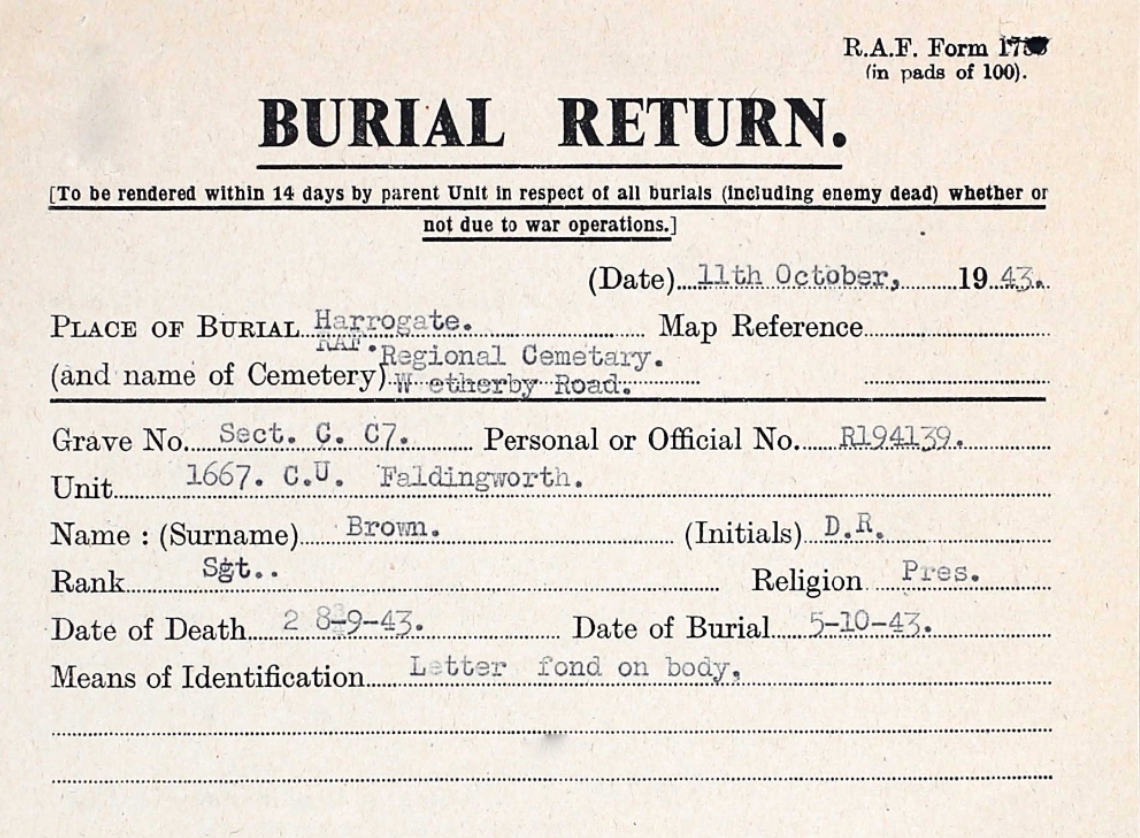 R.A.F. Form
(in pads of 100).
BURIAL RETURN.
[To be rendered within 14 days by parent Unit in respect of all burials (including enemy dead) whether or
not due to war operations.]
(Date) 11th October, 19 43.
PLACE OF BURIAL Harrogate. Map Reference
RAF. Regional Cemetary.
(and name of Cemetery) W etherby Road.
Grave No. Sect. C. C7. Personal or Official No. R194139.
Unit 1667. C.U. Faldingworth.
Name : (Surname) Brown. (Initials) D.R.
Rank Sgt.. Religion Pres.
Date of Death 2 8-9-43. Date of Burial 5-10-43.
Means of Identification Letter fond on body,